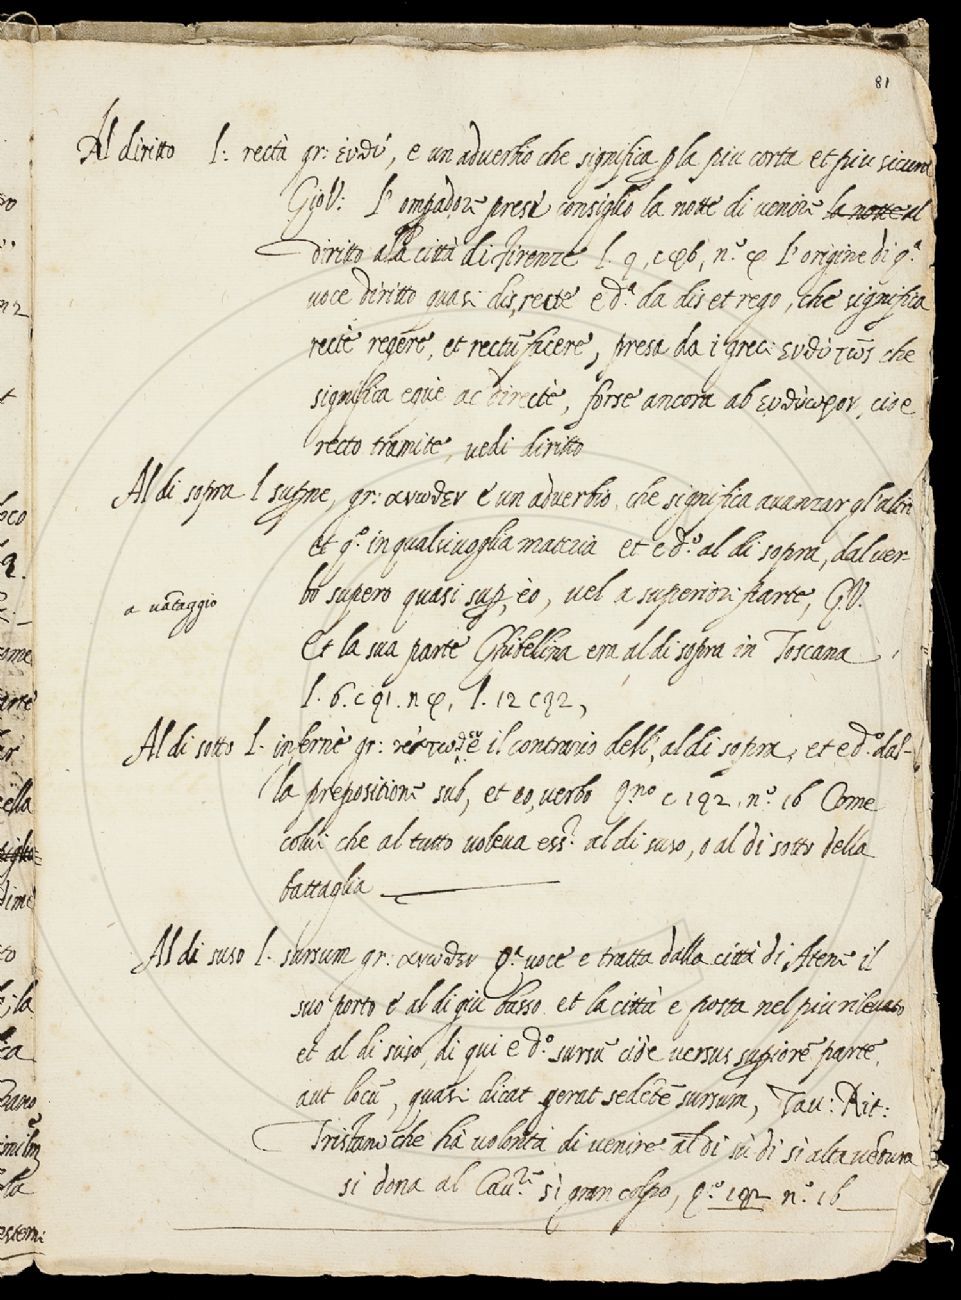 81
Al diritto l: recta gr: ἐυθύ, e un aduerbio che significa p la piu corta et piu sicura
Gio V: l'omperador prese consiglio la notte di venir la notte al
diritto alla città di firenze l. 9, c l'origine di q.a
uoce diritto quasi dis, recte e d.a da dis et rego, che significa
recte regere, et rectu ficere, presa da i greci che
significa eque ac directe, forse ancora ab ευθύωρον, cioe
recto tramite, vedi diritto
Al di sopra l supne, gr: ανωθεν e un aduerbio, che significa auanzar gl'altri
et q.o in qualsiuoglia materia et e d.o al di sopra, dal uer-
bo supero quasi sup, eo, uel a superiori parte, G.V.
a uātaggio
Et la sua parte Ghibellina era al di sopra in Toscana
l. 6. c 91. n l. 12 c 92,
Al di sotto l. inferne gr: il contrario dell, al di sopra, et e d.o dal-
la preposition sub, et eo, uerbo q.no c 192. n.o 16 Come
colui che al tutto uoleua ess.r al di suso, o al di sotto della
battaglia
Al di suso l. sursum gr: ανωθεν q.a uoce e tratta dalla città di Atene il
suo porto e al di giu basso et la città e posta nel piu rileuato
et al di suso, di qui e d.o sursū cioe uersus supiorē partē,
aut locū, quasi dicat gerat sedētē sursum, Tau: Rit:
Tristano che ha uolontà di uenire al di su di si alta uētura
si dona al Cau.re si gran colpo, q.o 192 n.o 16